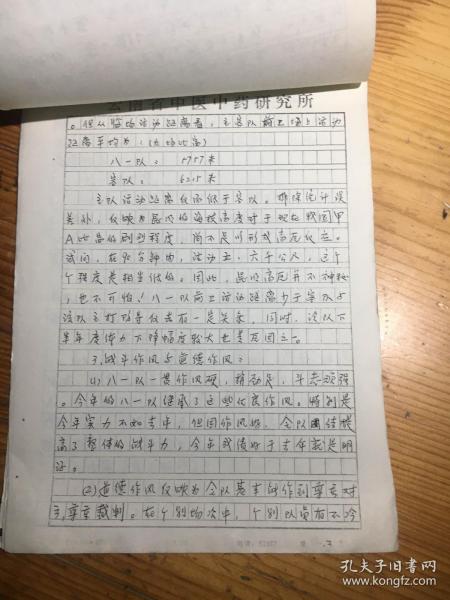 云南省中医中药研究所
。但从临场活动距离看，主客队前卫场上活动
距离平均为：（六场比赛）
八一队：5757米
客队：6215米
主队活动距离仅高低于客队。排除统计误
差外，反映为昆明的海拔高度对于现在我国甲
A比赛的剧烈程度，尚不足以形成高原反应。
试问，在90分钟内，活动五、六千公尺，这个
个强度是相当低的。因此，昆明高原并不神秘
，也不可怕！八一队前卫活动距离少于客队与
该队主打防守反击有一定关系，同时，该队下
半年度体力下降幅度较大也是原因之一。
3.战斗作风与道德作风：
(1)八一队一贯作风硬，精神足，斗志顽强
。今年的八一队继承了这些优良作风。特别是
今年实力不如去年，但因作风好，全队团结提
高了整体的战斗力，今年成绩好于去年就是明
证。
(2)道德作风反映为全队基本能作到尊重对
方，尊重裁判。在个别场次中，个别队员有不冷
孔夫子旧书网